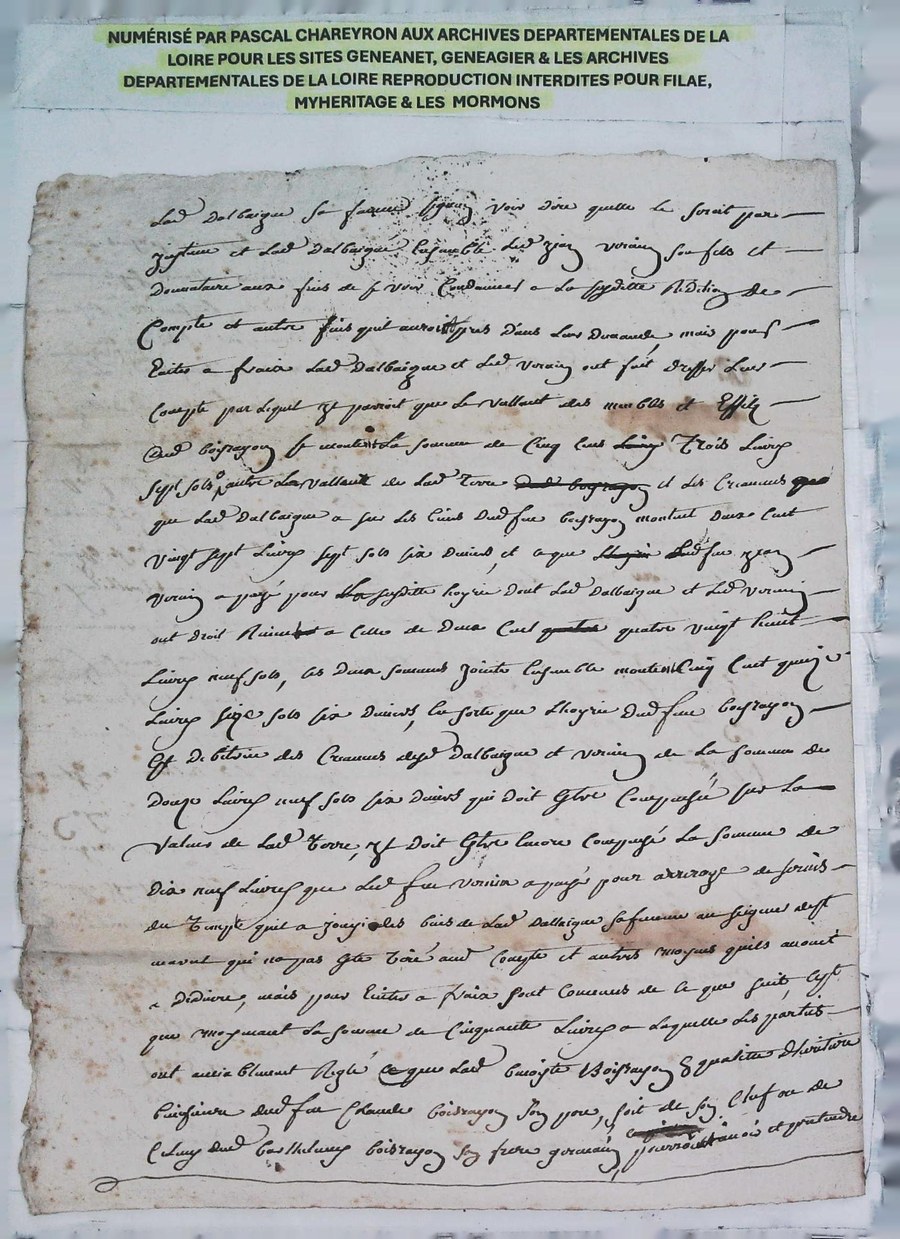 NUMÉRISÉ PAR PASCAL CHAREYRON AUX ARCHIVES DEPARTEMENTALES DE LA
LOIRE POUR LES SITES GENEANET, GENEAGIER & LES ARCHIVES
DEPARTEMENTALES DE LA LOIRE REPRODUCTION INTERDITES POUR FILAE,
MYHERITAGE & LES MORMONS
Lad Dalbaigue sa femme voir dire quelle le serait par
justice et Lad Dalbaigue Ensemble Led jean verain son fils et
Donnataire aux fins de se voir Condamner a La susditte Redition de
Compte et autre fins quil auroit pris dans Leur demande mais pour
Eviter a fraix Lad Dalbaigue et Led verain ont fait dresser Leur
Compte par Lequel yl paroit que Le vallant des meubles et Effets
Dud boisrayon se monte La somme de Cinq Cens Livres Trois Livres
sept sols autre Le vallant de Lad Terre dud boisrayon et des Creances que
que Lad Dalbaigue a sur Les biens Dud feu boisrayon montent Deux Cent
vingt sept Livres sept sols six deniers, et ce que Led feu jean
verain a payé pour La susditte hoyrie dont Lad Dalbaigue et Led verain
ont droit a Celle de Deux Cent quatre quatre vingt huit
Livres neuf sols, les deux sommes jointe Ensemble montent Cinq Cent quinze
Livres seize sols six deniers, En sorte que Lhoyrie Dud feu boisrayon
Est debitrice des Creances desd Dalbaigue et verain de La somme de
Douze Livres neuf sols six deniers qui doit Estre Compensée sur La
valeur de Lad Terre, yl doit Estre Encore Compensé La somme de
Dix neuf Livres que Led feu verain a payé pour arrerage de servis
du Temps quil a jouy des biens de Lad Dalbaigue sa femme au seigneur dest
qui na pas Esté Tiré aud Compte et autres moyens quils avoient
a Deduire, mais pour Eviter a fraix sont Convenus de Ce que suit, Cest
que moyenant La somme de Cinquante Livres a Laquelle Les parties
ont amiablement Reglé Ce que Lad benoiste Boisrayon E qualitté dheritiere
Dud feu Claude boisrayon son pere, soit de son Chef ou de
Celuy Dud barthelemy boisrayon son frere germain, pourroit avoir et pretendre